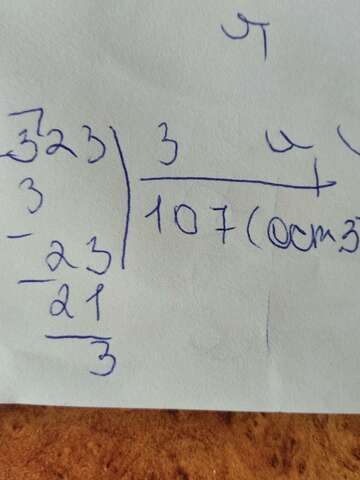 323 3
3 107 (ост 3
23
21
3